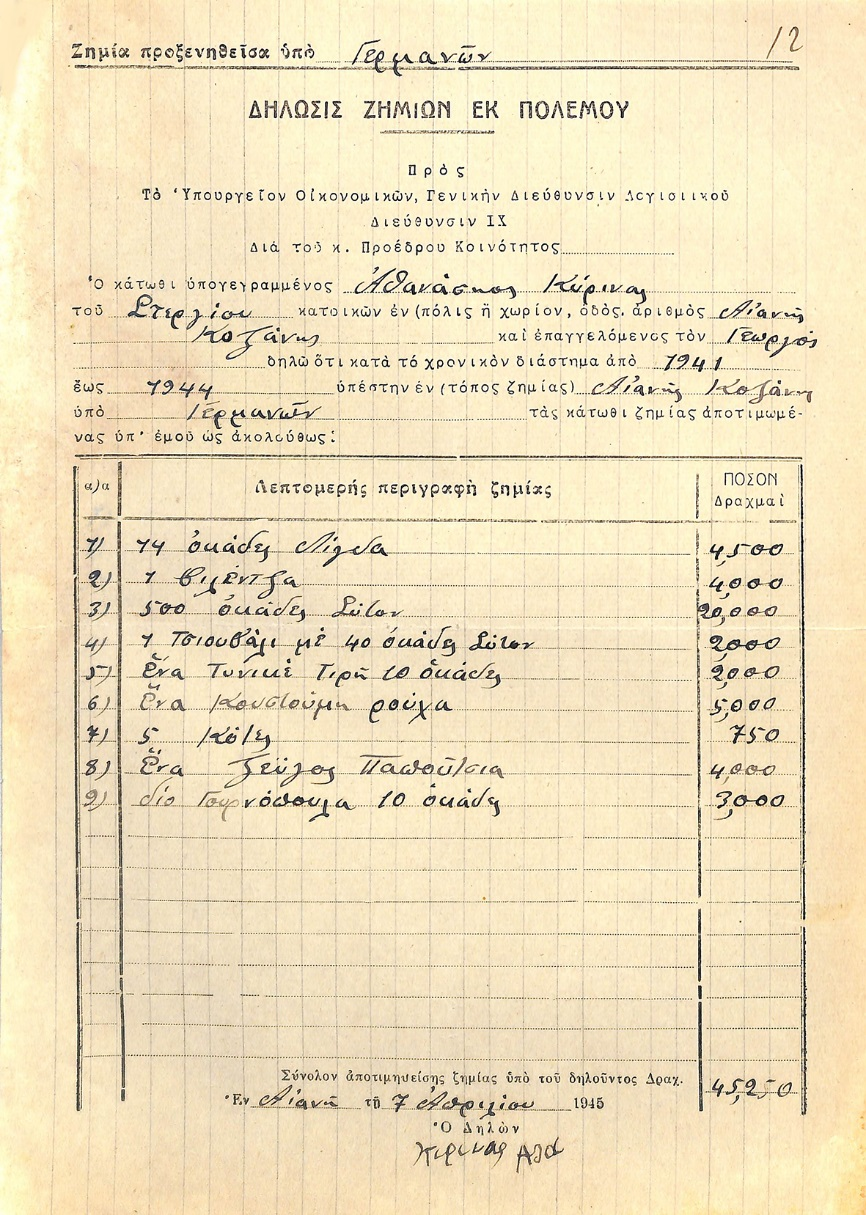 12
Ζημία προξενηθεῖσα ὑπὸ Γερμανῶν
ΔΗΛΩΣΙΣ ΖΗΜΙΩΝ ΕΚ ΠΟΛΕΜΟΥ
Πρὸς
Τὸ Ὑπουργεῖον Οἰκονομικῶν, Γενικὴν Διεύθυνσιν Λογιστικοῦ
Διεύθυνσιν IX
Διὰ τοῦ κ. Προέδρου Κοινότητος
Ὁ κάτωθι ὑπογεγραμμένος Ἀθανάσιος Κύρινας
τοῦ Στεργίου κατοικῶν ἐν (πόλις ἢ χωρίον, ὁδὸς, ἀριθμὸς Αἰανῆς
Κοζάνης καὶ ἐπαγγελόμενος τὸν Γεωργὸς
δηλῶ ὅτι κατὰ τὸ χρονικὸν διάστημα ἀπὸ 1941
ἕως 1944 ὑπέστην ἐν (τόπος ζημίας) Αἰανῆς Κοζάνης
ὑπὸ Γερμανῶν τὰς κάτωθι ζημίας ἀποτιμωμέ-
νας ὑπ' ἐμοῦ ὡς ἀκολούθως:
α)α Λεπτομερὴς περιγραφὴ ζημίας ΠΟΣΟΝ Δραχμαὶ
1) 14 ὀκάδες Λίγδα 4,500
2) 1 βιλέντζα 4,000
3) 500 ὀκάδες Σύτον 20,000
4) 1 Τσιουβάλι μὲ 40 ὀκάδες Σύτον 2,000
5) Ἕνα Τυνικὲ Τιρῆ 10 ὀκάδες 2,000
6) Ἕνα Κουστούμη ρούχα 5,000
7) 5 Κότες 750
8) Ἕνα ζεύγος Παπούτσια 4,000
9) δίο Γουρνόπουλα 10 ὀκάδες 3,000
Σύνολον ἀποτιμηθείσης ζημίας ὑπὸ τοῦ δηλοῦντος Δραχ. 45,250
Ἐν Αἰανῆ τῇ 7 Ἀπριλίου 1945
Ὁ Δηλῶν
Κιρινας Αθα